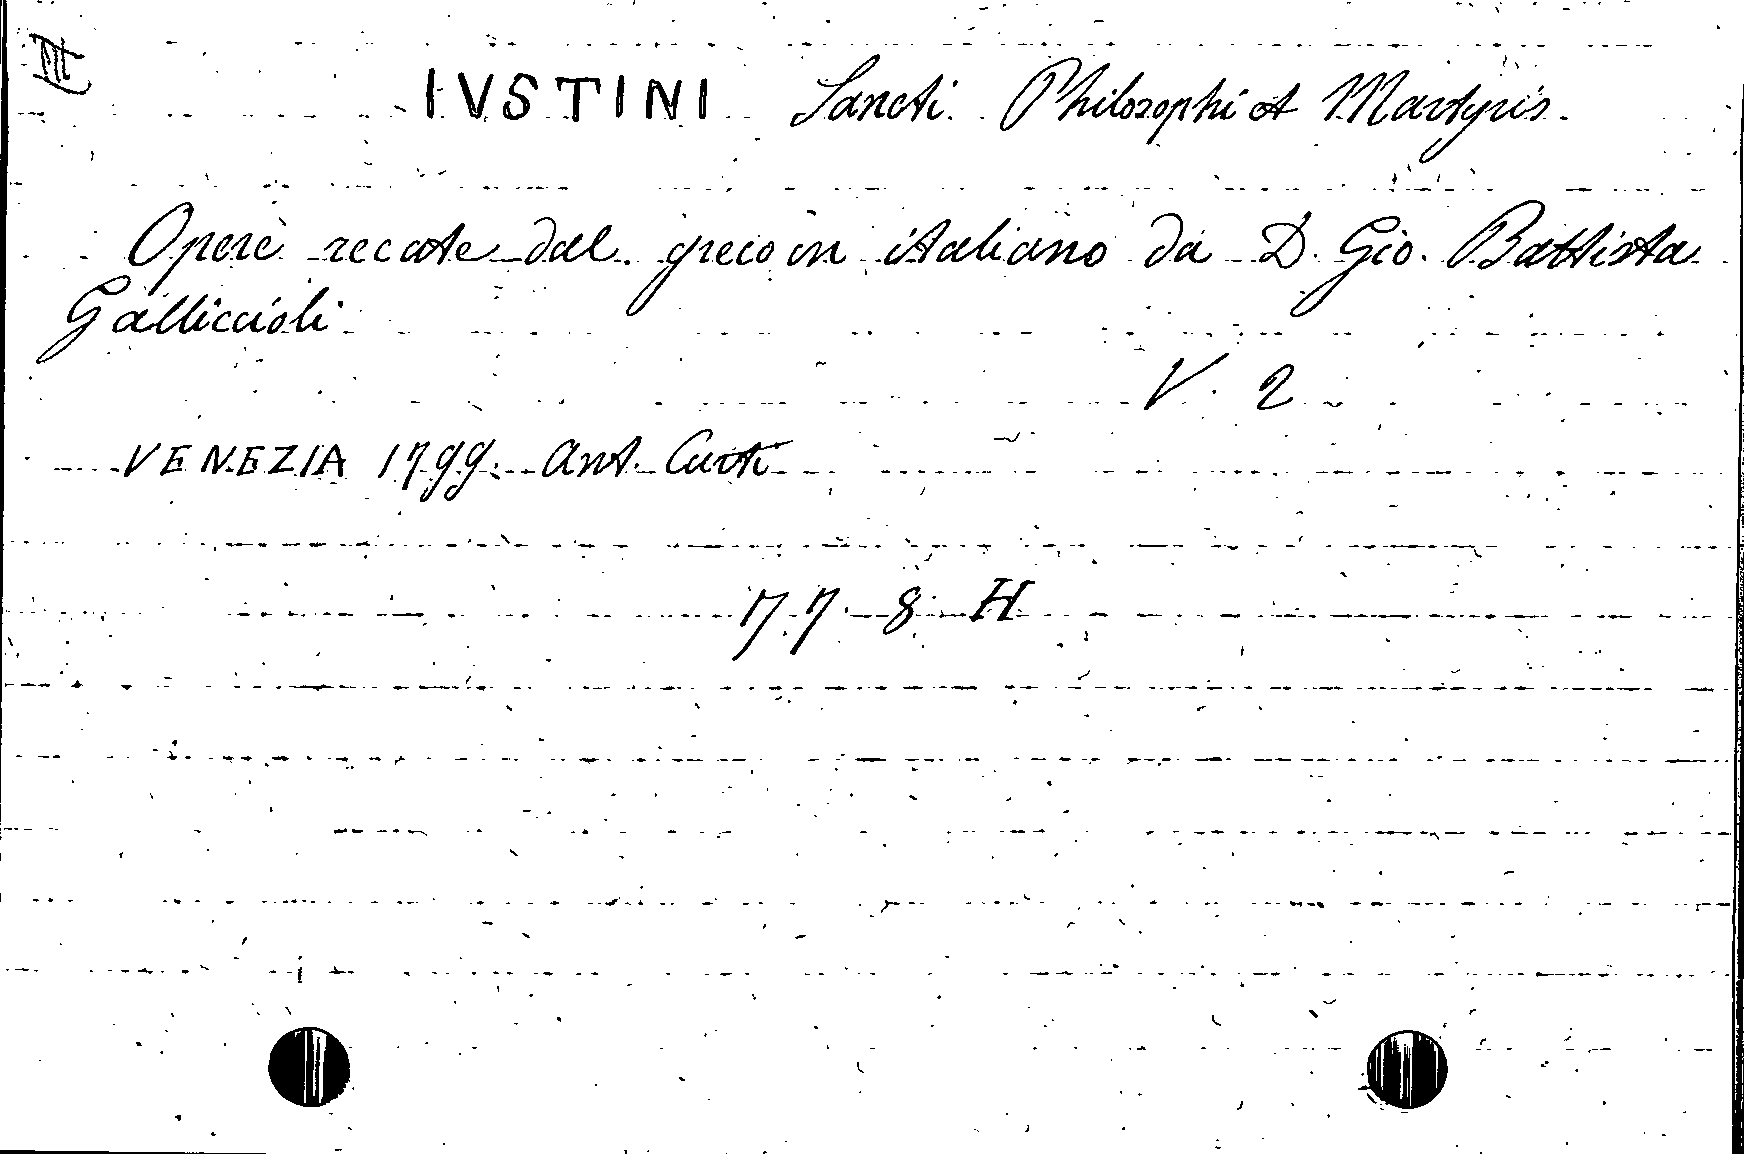 III
IVSTINI Sancti Philosophi et Martyris.
Opere recate dal greco in italiano da D. Gio. Battista
Galliccioli
V. 2
VENEZIA 1799. Ant. Curti
77. 8. H